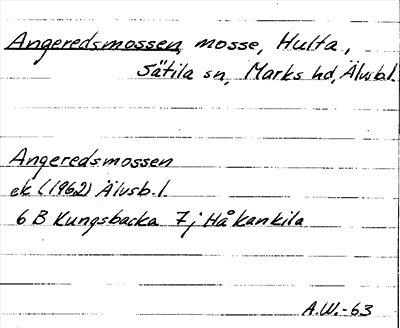 Angeredsmossen, mosse, Hulta,
Sätila sn, Marks hd, Älvsb.l.
Angeredsmossen
ek (1962) Älvsb.l
6 B Kungsbacka 7j Håkankila
A.W.-63